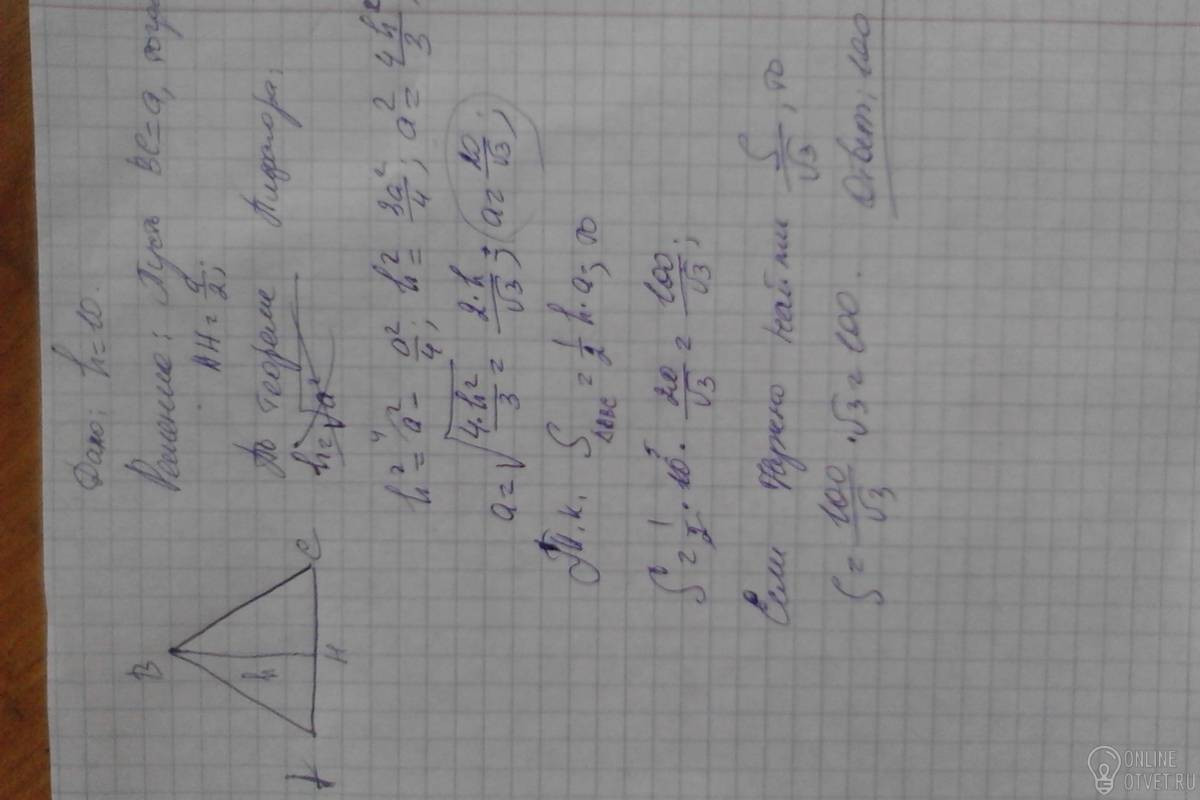 Дано: h=10.
Решение: Пусть BC=a, тогда
AH=a/2;
По теореме Пифагора:
h=√a²
h²=a²-a²/4; h²=3a²/4; a²=4h²/3;
a=√(4·h²/3)=2·h/√3; a=20/√3;
Т.к. S△ABC=1/2 h·a, то
S=1/2·10·20/√3=100/√3;
Если нужно найти S/√3, то
S=100/√3·√3=100.
Ответ: 100
B
h
A
H
C
ONLINE
OTVET.RU